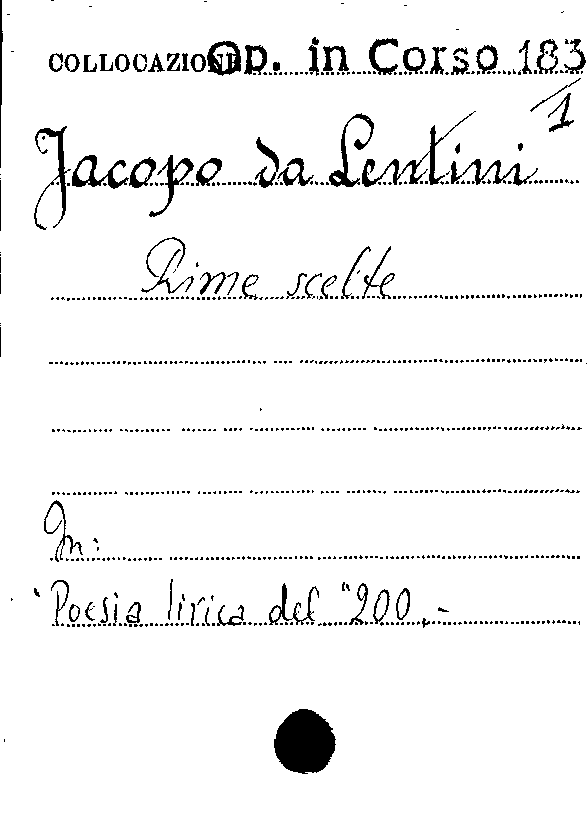 COLLOCAZIONE Op. in Corso 183
1
Jacopo da Lentini
Rime scelte
In:
"Poesia lirica del "200.-